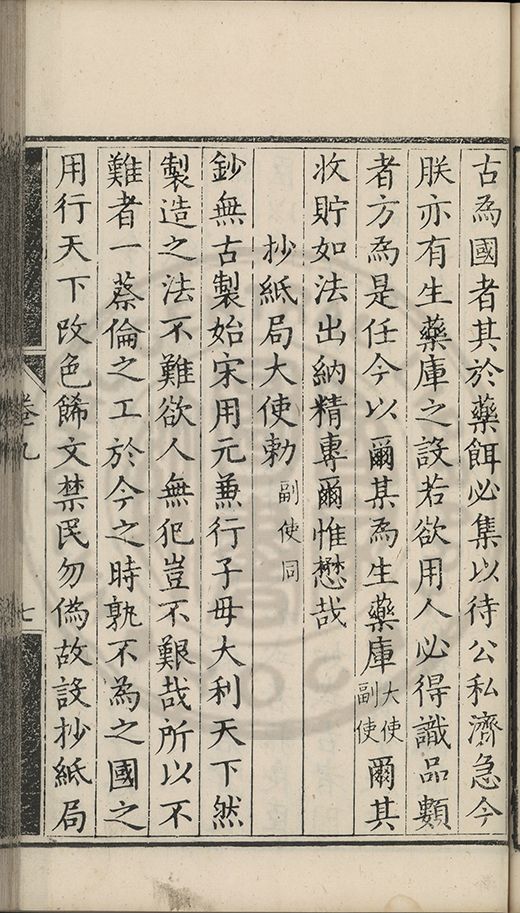 古為國者其於藥餌必集以待公私濟急今
朕亦有生藥庫之設若欲用人必得識品類
者方為是任今以爾某為生藥庫大使副使爾其
收貯如法出納精專爾惟懋哉
抄紙局大使勑副使同
鈔無古製始宋用元兼行子母大利天下然
製造之法不難欲人無犯豈不艱哉所以不
難者一蔡倫之工於今之時孰不為之國之
用行天下改色餙文禁民勿偽故設抄紙局
卷九
七